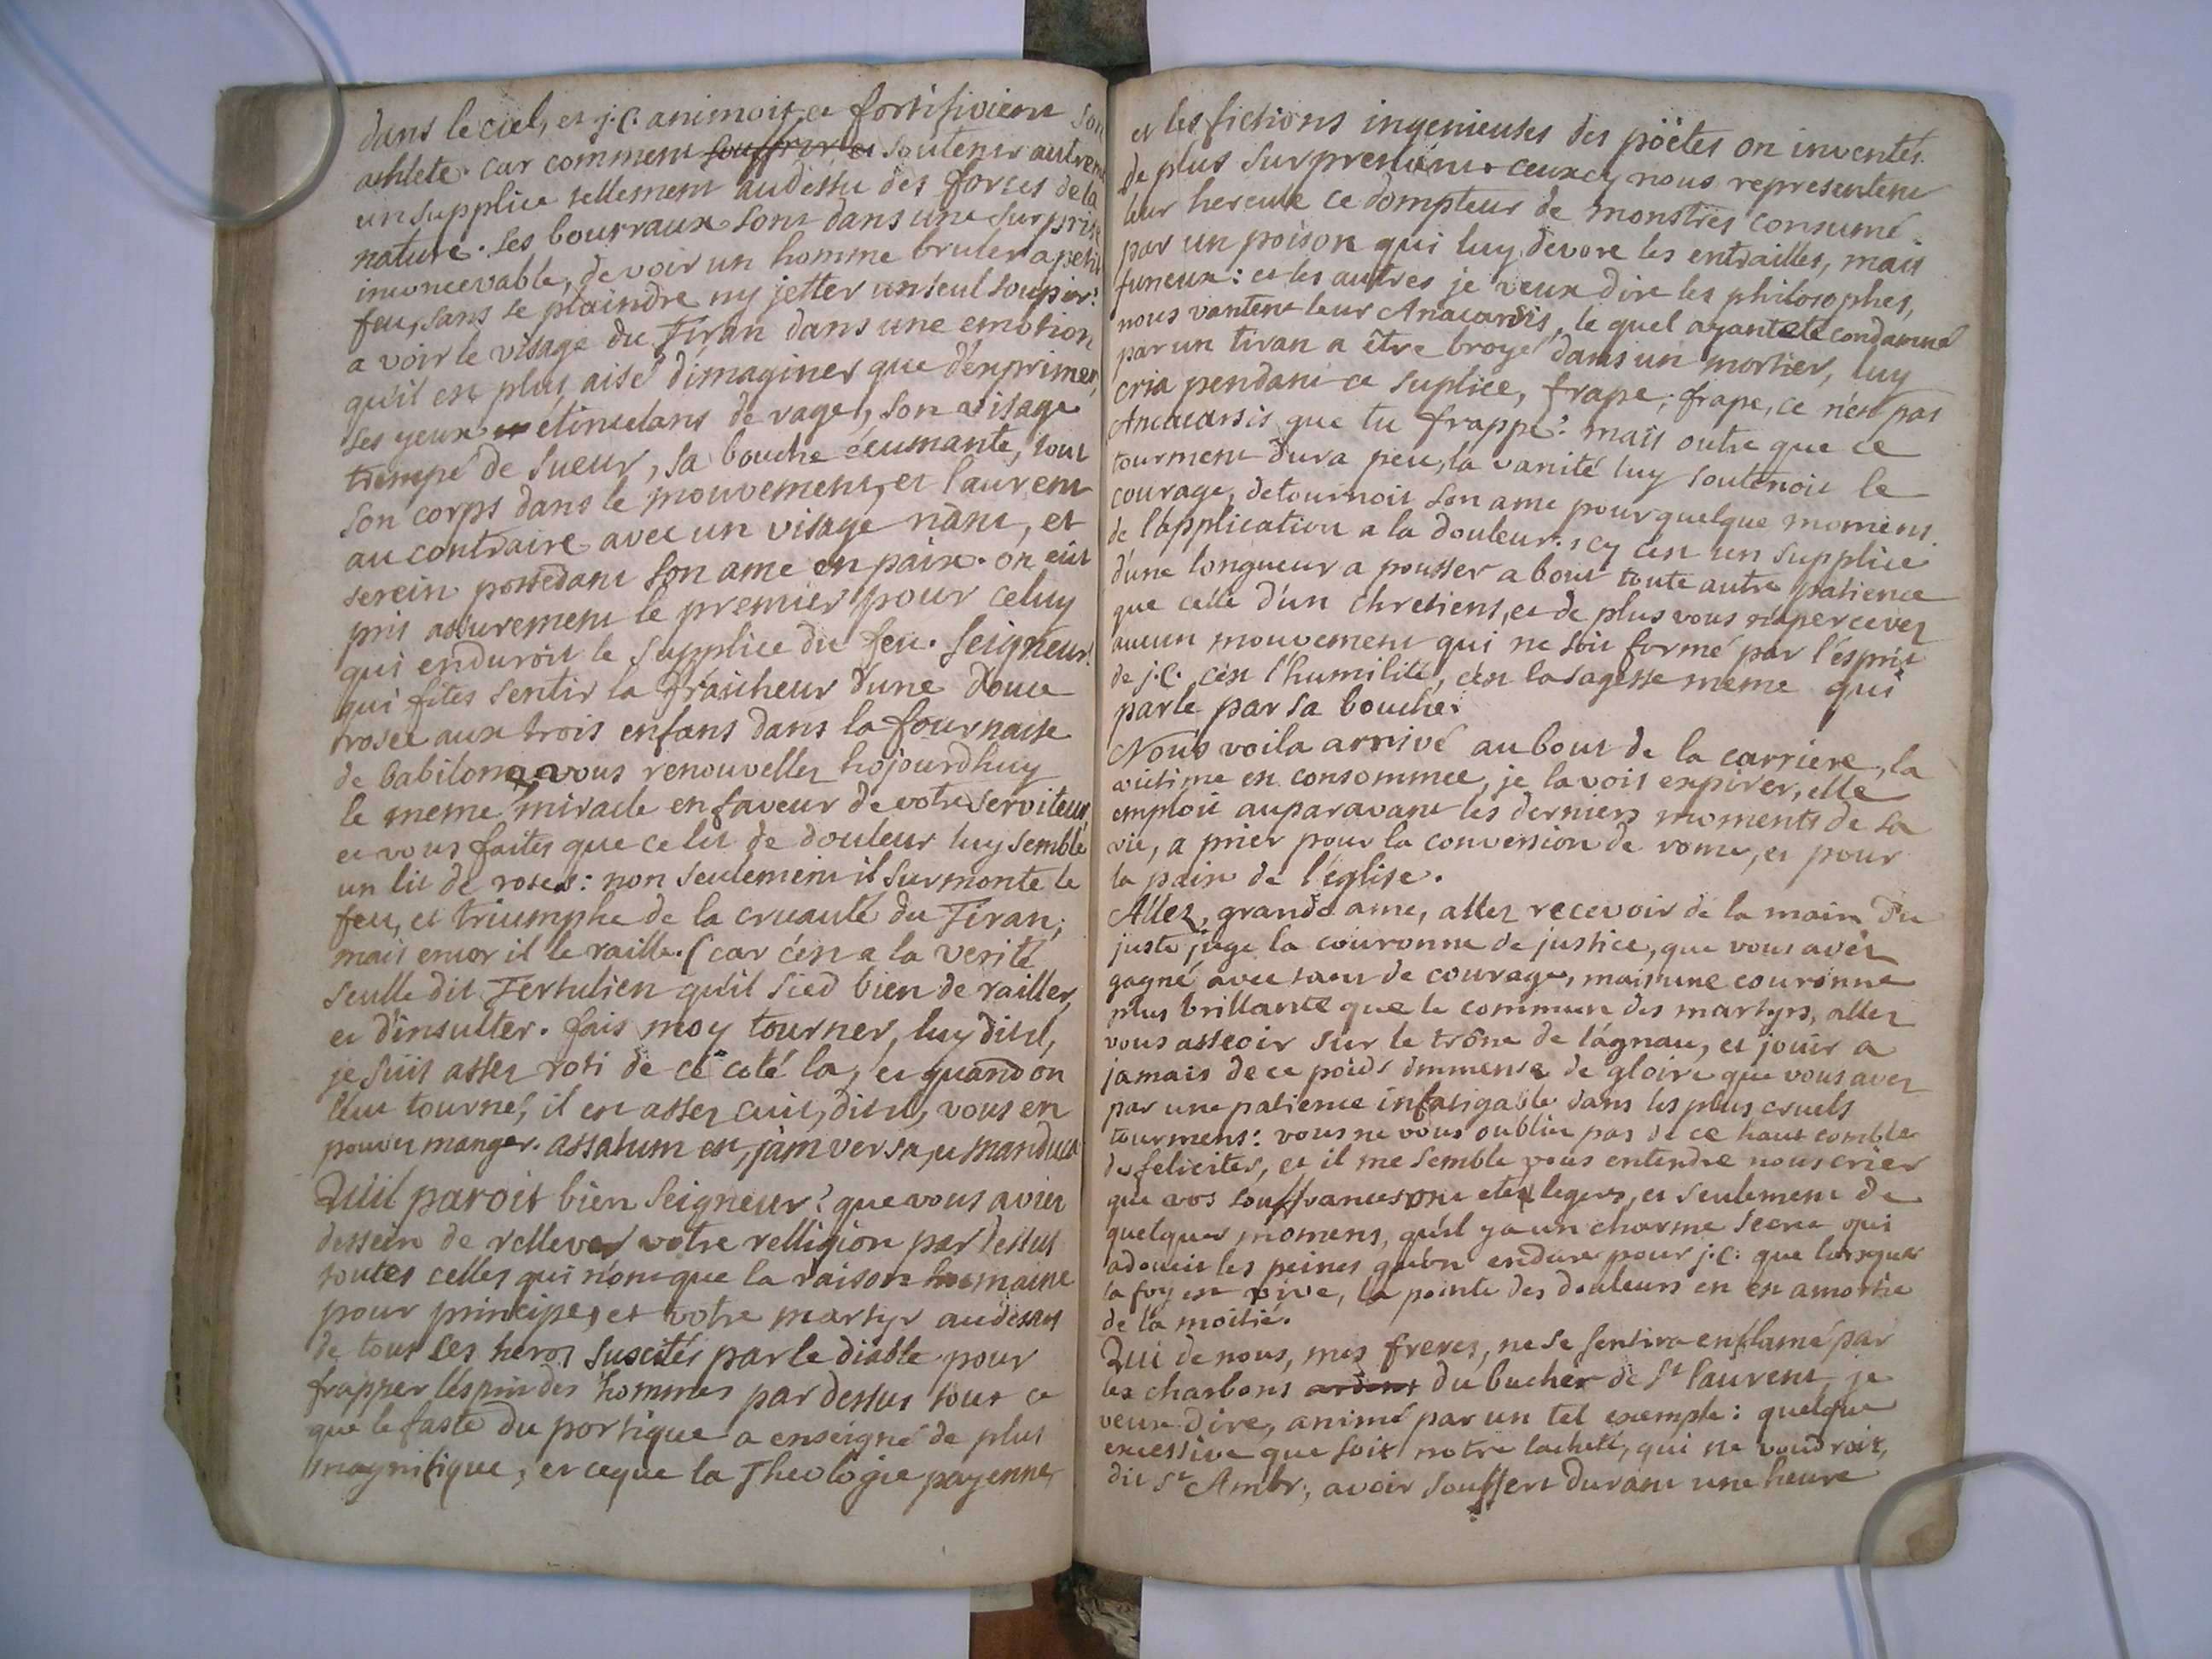 dans le ciel, et j.C. animoit et fortifioient son
athlete. car comment souffrir et soutenir autrem
un supplice tellement audessu des forces de la
nature. les bourraux sont dans une surprise
inconcevable, de voir un homme bruler a petit
feu, sans se plaindre ny jetter un seul soupir:
a voir le visage du Tiran dans une emotion
qu'il est plus aisé d'imaginer que d'exprimer,
ses yeux etincelans de rage, son visage
trempé de sueur, sa bouche écumante, tout
son corps dans le mouvement, et laurent
au contraire avec un visage riant, et
serein possedant son ame en paix. on eut
pris assurement le premier pour celuy
qui enduroit le supplice du feu. Seigneur!
qui fites sentir la fraicheur d'une douce
rosee aux trois enfans dans la fournaise
de babilone, vous renouvellez hojourdhuy
le meme miracle en faveur de votre serviteur,
et vous faites que ce lit de douleur luy semble
un lit de roses: non seulement il surmonte le
feu, et triumphe de la cruauté du Tiran,
mais encor il le raille. (car c'est a la verité
seulle dit Tertulien qu'il sied bien de railler,
et d'insulter. fais moy tourner, luy dit il,
je suis assez roti de ce coté la, et quand on
l'eut tourné, il est assez cuit, dit il, vous en
pouvez manger. assatum est, jam versa, et manduca
Quil paroit bien Seigneur! que vous aviez
dessein de rellever votre relligion par dessus
toutes celles qui n'ont que la raison humaine
pour principe, et votre martyr audessus
de tous les heros suscités par le diable pour
frapper l'esprit des hommes par dessus tout ce
que le faste du portique a enseigné de plus
magnifique, et ceque la Theologie payenne,
et les fictions ingenieuses des poëtes on inventés
de plus surprenant. ceux cy nous representent
leur hercule ce dompteur de monstres consumé
par un poison qui luy devore les entrailles, mais
furieux: et les autres je veux dire les philosophes,
nous vantent leur Anacarsis, le quel ayant eté condamné
par un tiran a être broyé dans un mortier, luy
cria pendant ce suplice, frape, frape, ce n'est pas
Anacarsis que tu frappe: mais outre que ce
tourment dura peu, la vanité luy soutenoit le
courage, detournoit son ame pour quelque momens
de l'application a la douleur. icy c'est un supplice
d'une longueur a pousser a bout toute autre patience
que celle d'un chretiens, et de plus vous n'apercevez
aucun mouvement qui ne soit formé par l'esprit
de j.C. c'est l'humilité, c'est la sagesse meme qui
parle par sa bouche:
Nous voila arrivé au bout de la carriere, la
victime est consommée, je la vois expirer, elle
emploie auparavant les derniers moments de sa
vie, a prier pour la conversion de rome, et pour
la paix de l'église.
Allez, grande ame, allez recevoir de la main du
juste juge la couronne de justice, que vous avéz
gagné avec tant de courage, mais une couronne
plus brillante que le commun des martyrs, allez
vous asseoir sur le trône de l'agnau, et jouir a
jamais de ce poids immense de gloire que vous avez
par une patience infatigable dans les plus cruels
tourmens: vous ne vous oubliez pas de ce haut comble
de felicités, et il me semble vous entendre nous crier
que vos souffrances ont eté legers, et seulement de
quelques momens, qu'il y a un charme secret qui
adoucit les peines qu'on endure pour j.C. que lorsque
la foy est vive, la pointe des douleurs en est amortie
de la moitié.
Qui de nous, mes freres, ne se sentira enflamé par
les charbons ardens du bucher de St laurent, je
veux dire, animé par un tel exemple: quelque
excessive que soit notre lacheté, qui ne voudroit,
dit St Ambr, avoir souffert durant une heure